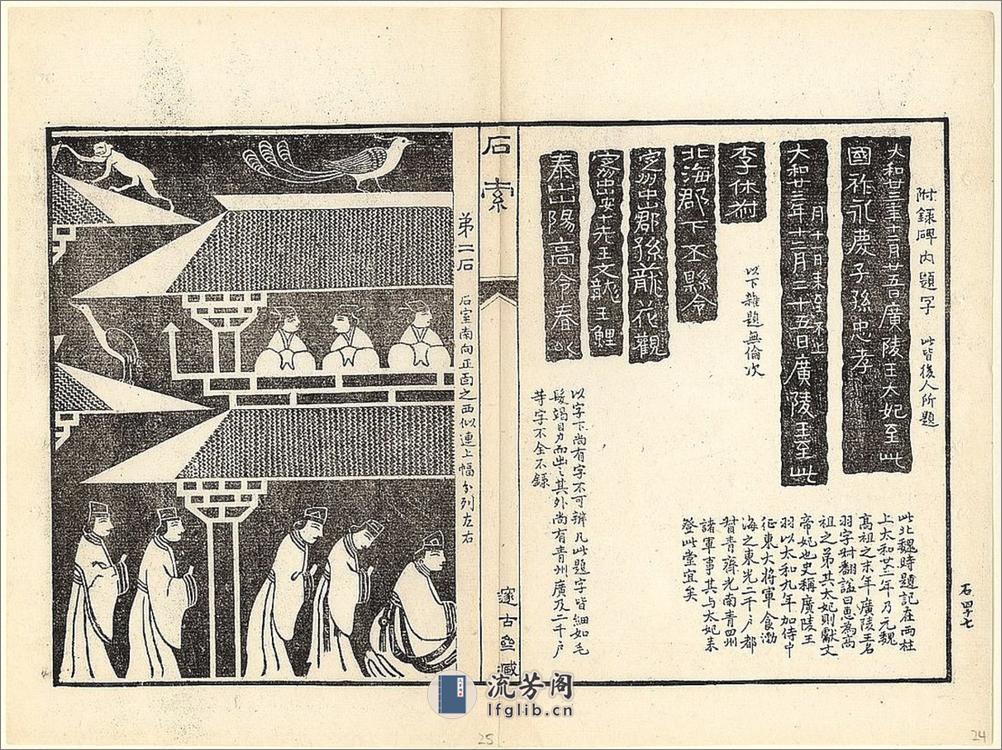 附錄碑內題字 此皆後人所題
大和廿三年十二月廿五日廣陵王太妃至此
國祚永慶子孫忠孝
大和廿三年十二月二十五日廣陵王至此
此北魏時題記在兩柱
上太和廿三年乃元魏
高祖之末年廣陵王名
羽字叔翻諡曰惠為高
祖之弟其太妃則獻文
帝妃也史稱廣陵王
羽以太和九年加侍中
征東大將軍食渤
海之東光二千戶都
督青齊光南青四州
諸軍事其與太妃來
登此堂宜矣
李休
以下雜題無倫次
北海郡下丕縣令
郡孫龍花觀
泰山陽高令春以
以字下尚有字不可辨凡此題字皆細如毛
髮竭目力而出之其外尚有青州廣及二千戶
等字不全不錄
石四十七
石索
邃古齋藏
弟二石 石室南向正面之西似連上幅分列左右
流芳阁
lfglib.cn
25
24